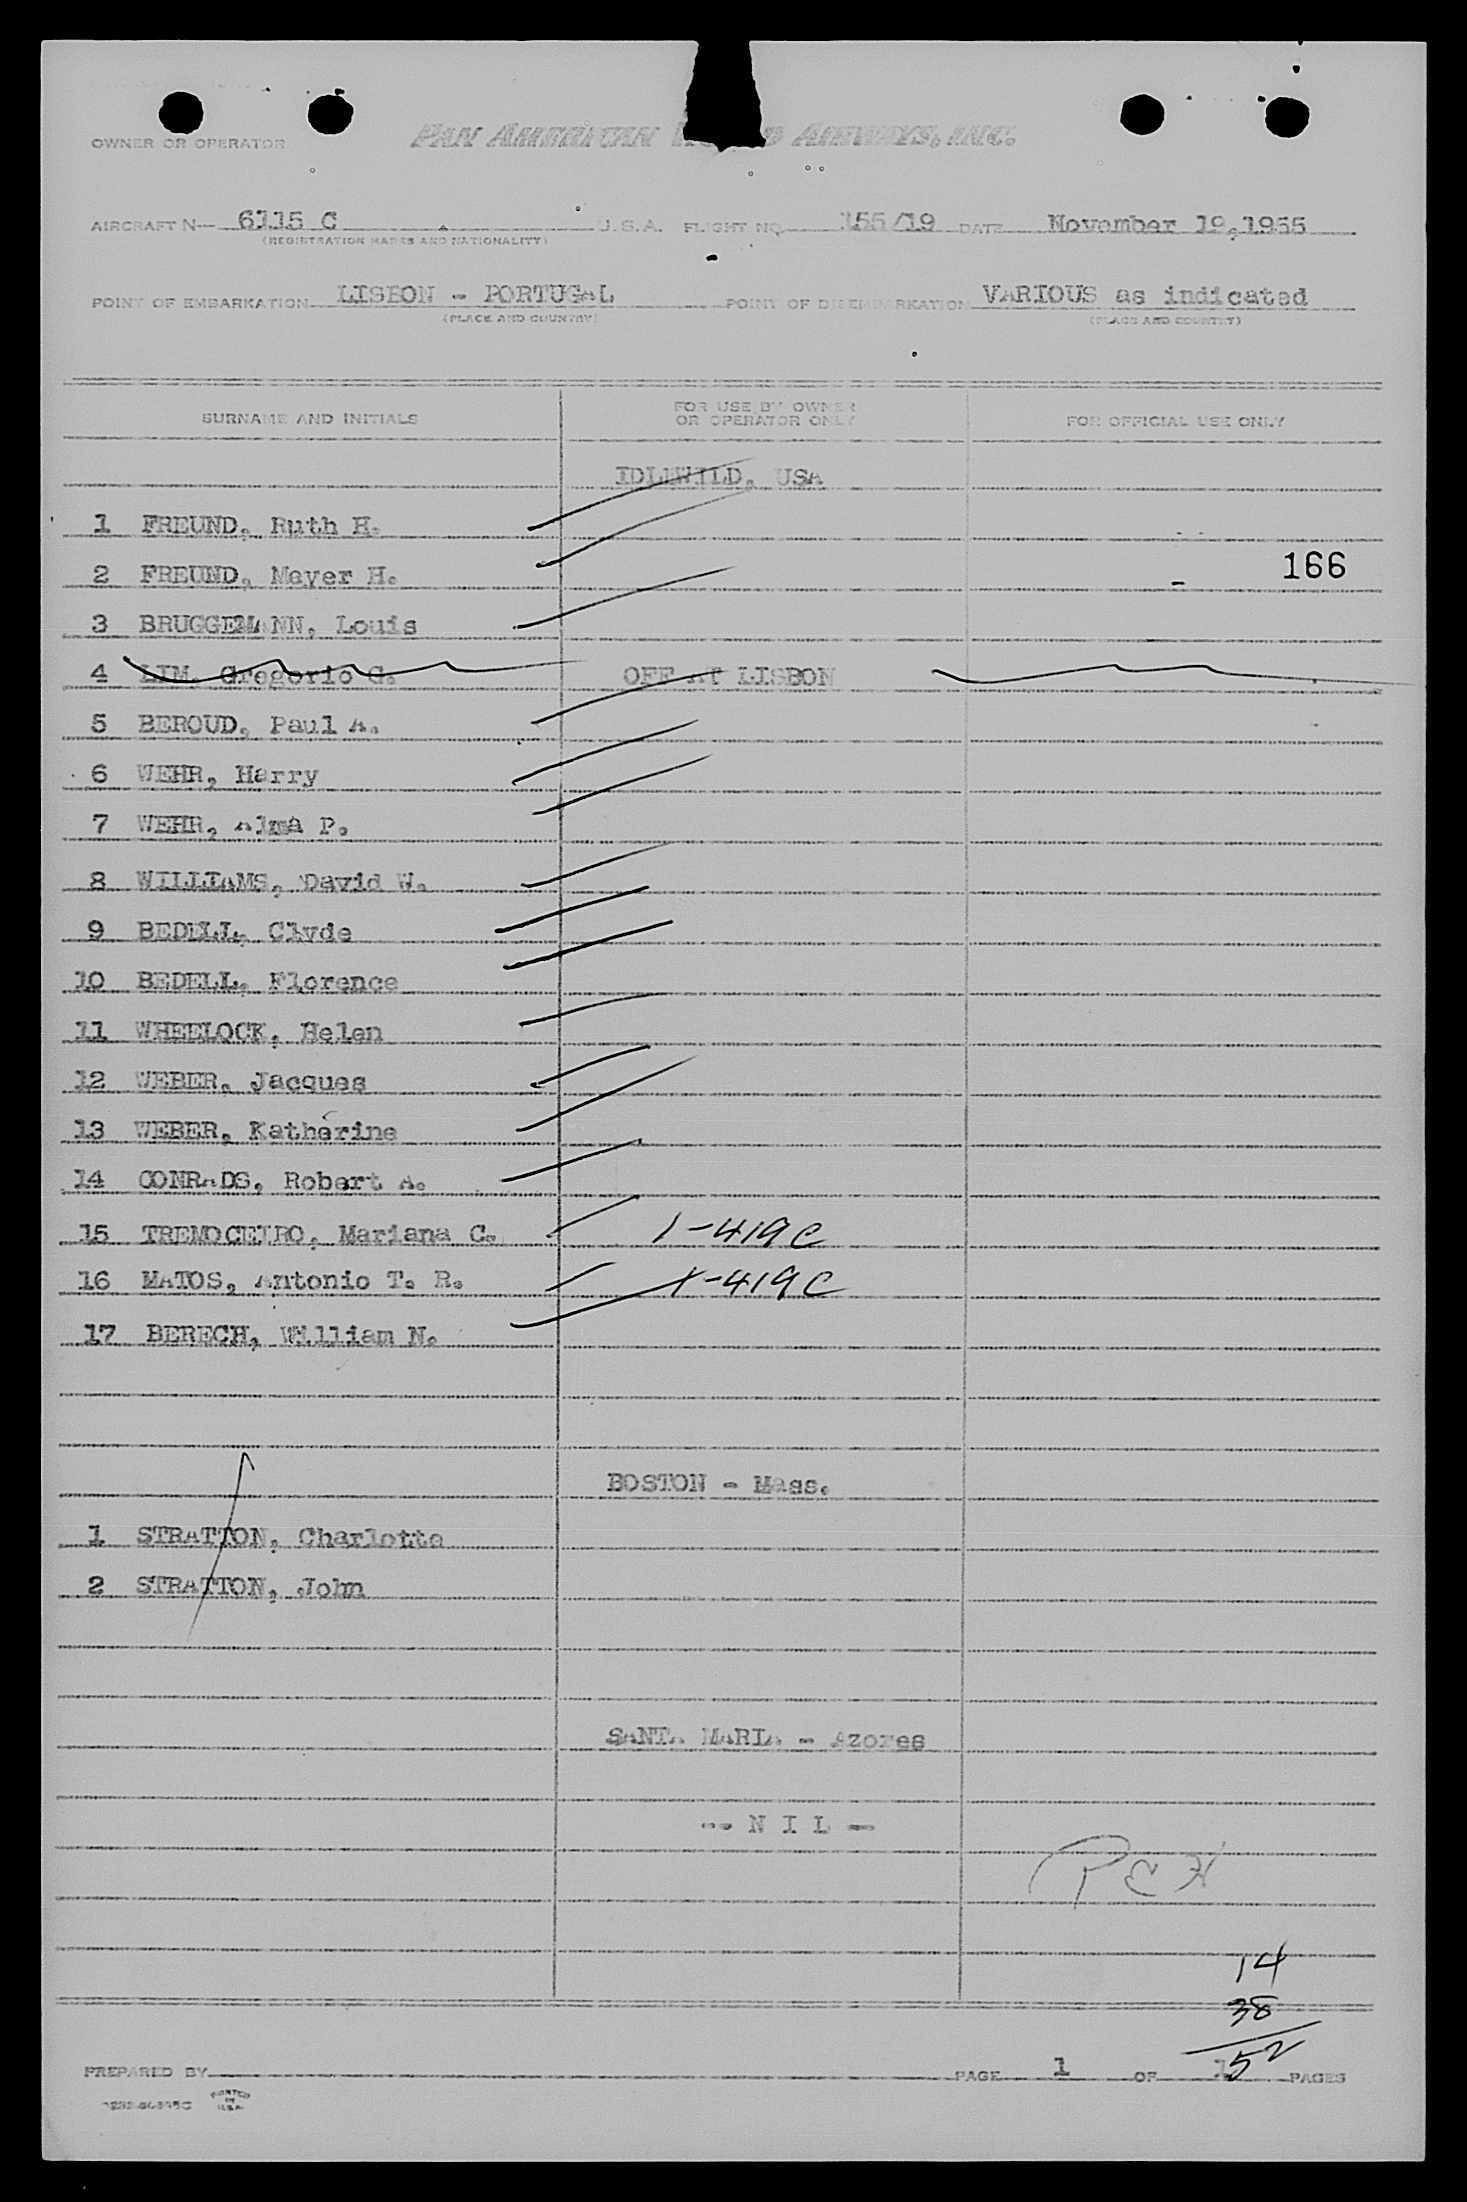 OWNER OR OPERATOR PAN AMERICAN AIRWAYS, INC.
AIRCRAFT N— 6115 C U.S.A. FLIGHT NO. 155/19 DATE November 19,1955
(REGISTRATION MARKS AND NATIONALITY)
POINT OF EMBARKATION LISBON - PORTUGAL POINT OF DISEMBARKATION VARIOUS as indicated
(PLACE AND COUNTRY) (PLACE AND COUNTRY)
SURNAME AND INITIALS FOR USE BY OWNER OR OPERATOR ONLY FOR OFFICIAL USE ONLY
IDLEWILD, USA
1 FREUND, Ruth H.
166
2 FREUND, Mayer H.
3 BRUGGEMANN, Louis
4 LIM, Gregorio G. OFF AT LISBON
5 BEROUD, Paul A.
6 WEHR, Harry
7 WEHR, Alma P.
8 WILLIAMS, David W.
9 BEDELL, Clyde
10 BEDELL, Florence
11 WHEELOCK, Helen
12 WEBER, Jacques
13 WEBER, Katherine
14 CONRADS, Robert A.
15 TREMOCEIRO, Mariana C. 1-419C
16 MATOS, Antonio T. R. 1-419C
17 BERECH, William N.
BOSTON - Mass.
1 STRATTON, Charlotte
2 STRATTON, John
SANTA MARIA - Azores
-- N I L --
14
38
52
PREPARED BY PAGE 1 OF 1 PAGES
PRINTED
IN
U.S.A.